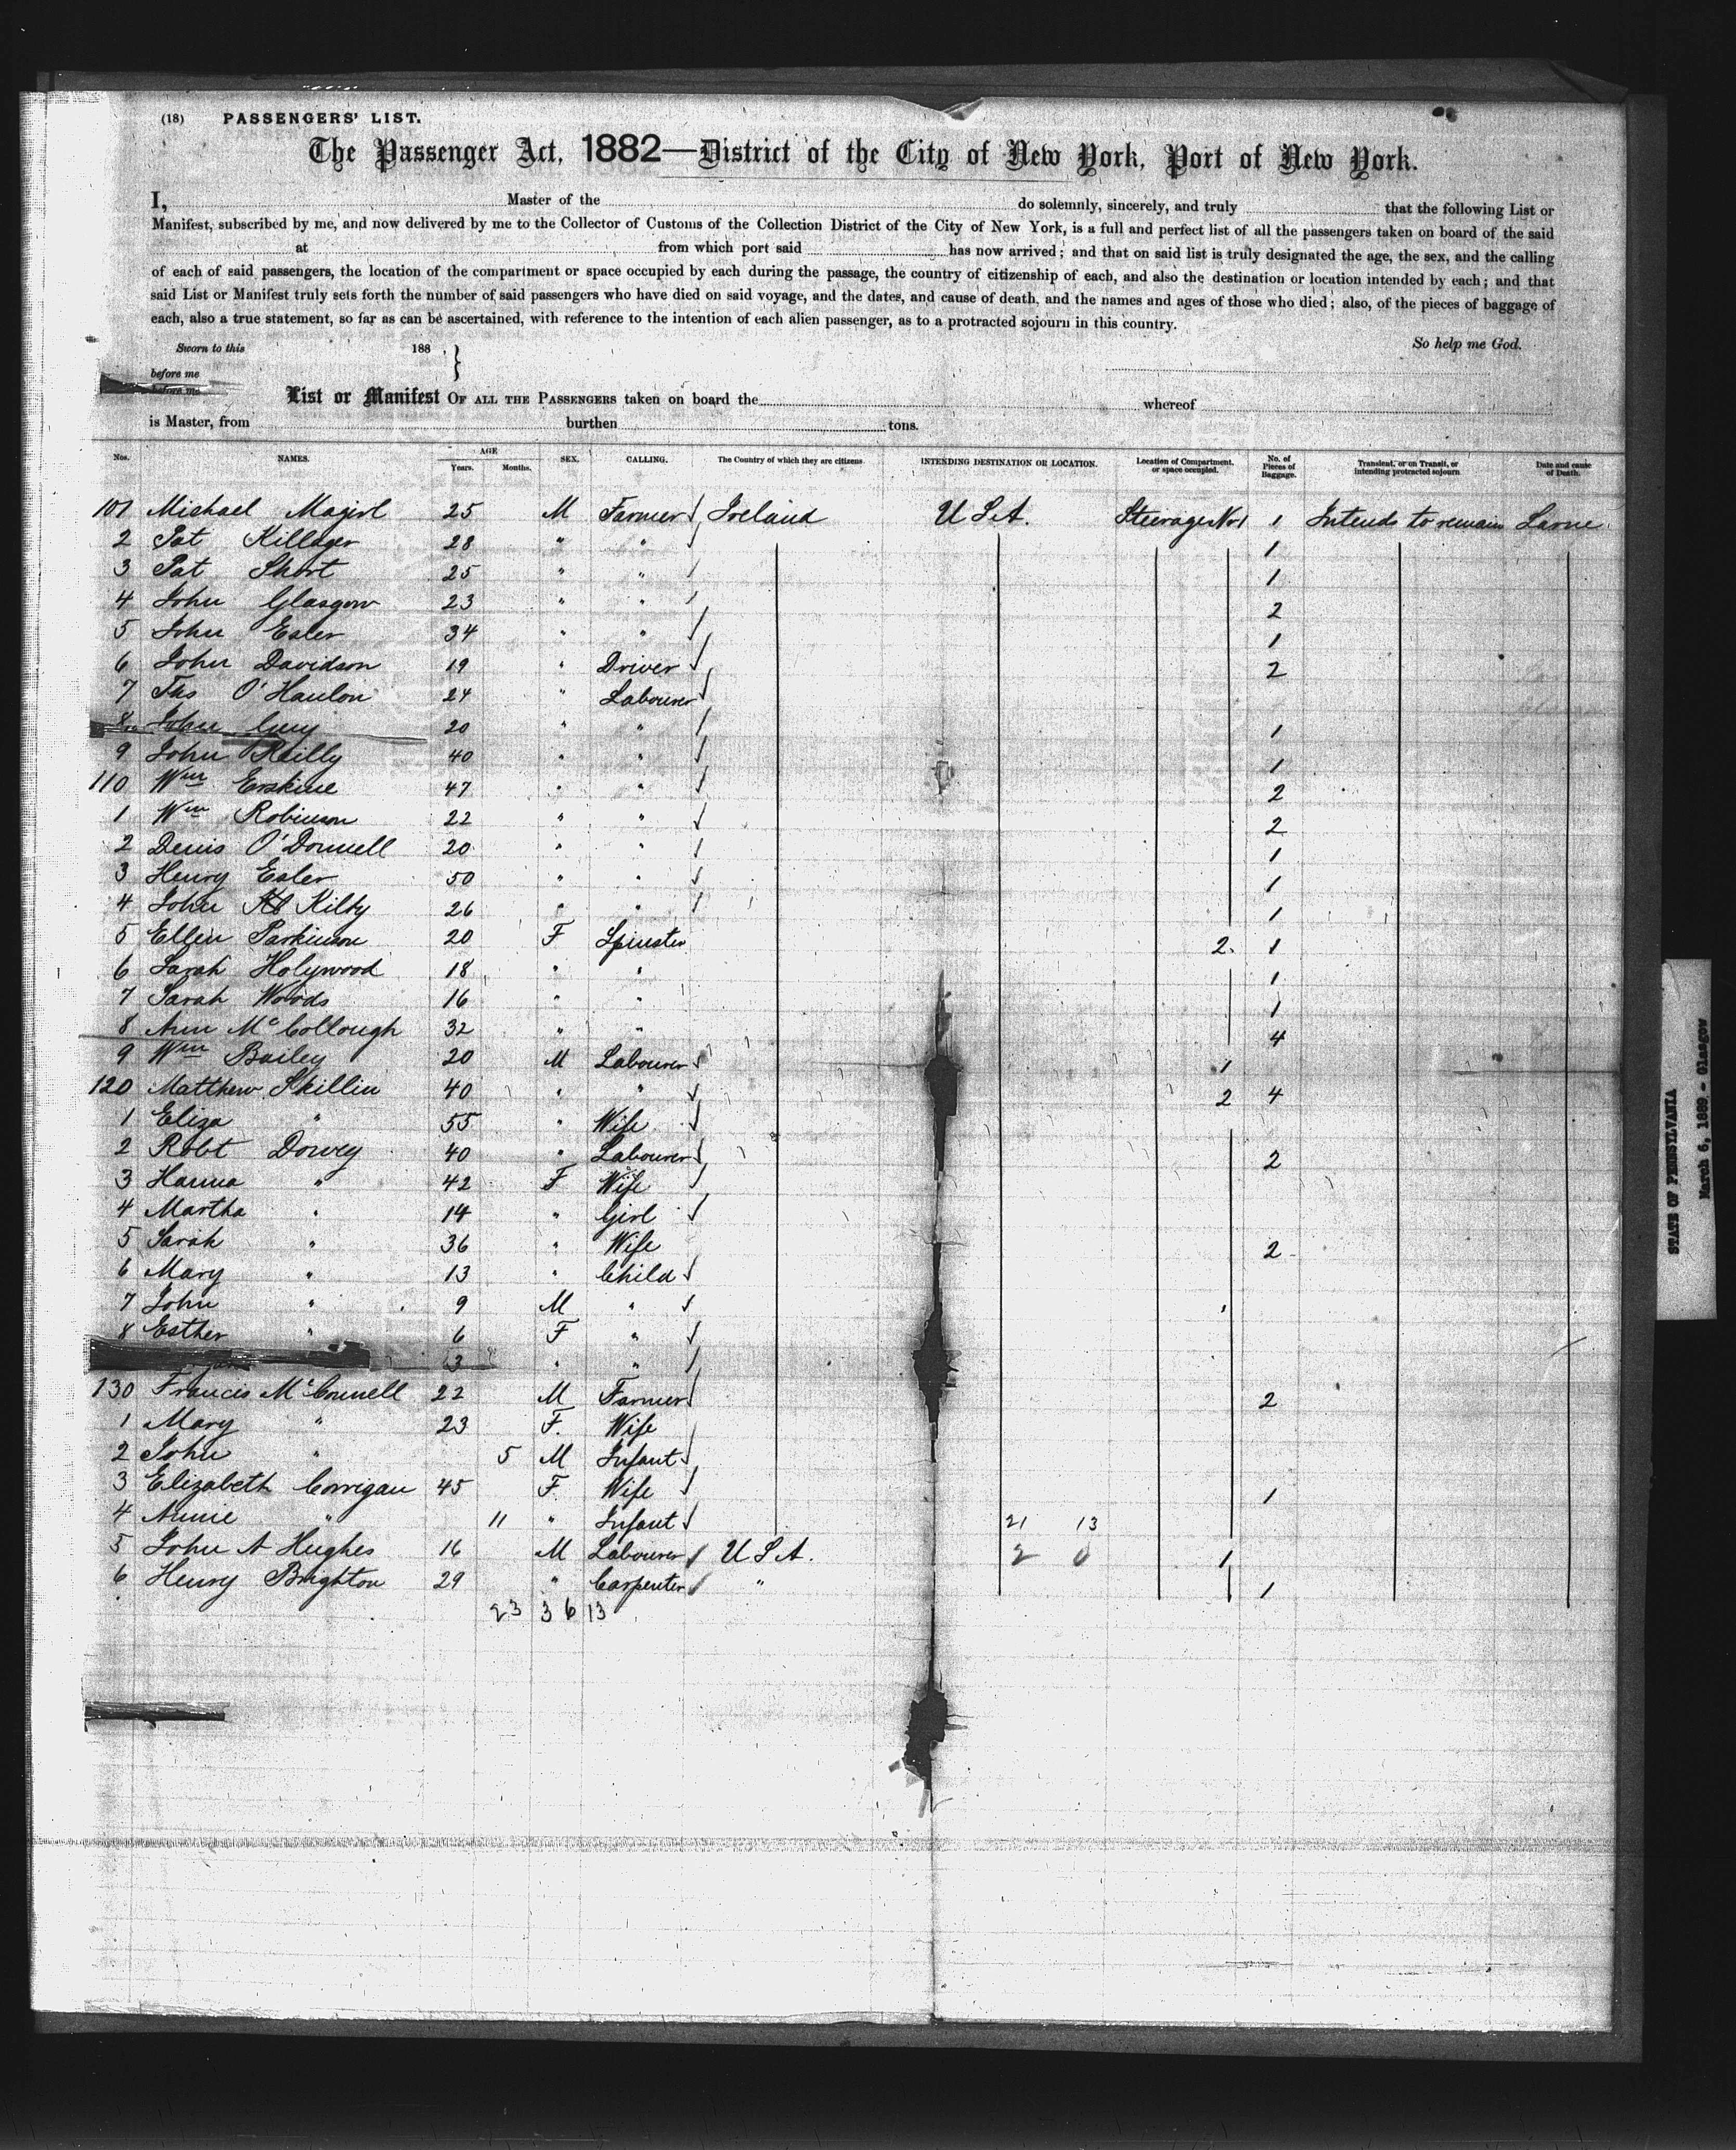 (18) PASSENGERS' LIST.
The Passenger Act, 1882—District of the City of New York, Port of New York.
I, Master of the do solemnly, sincerely, and truly that the following List or
Manifest, subscribed by me, and now delivered by me to the Collector of Customs of the Collection District of the City of New York, is a full and perfect list of all the passengers taken on board of the said
at from which port said has now arrived; and that on said list is truly designated the age, the sex, and the calling
of each of said passengers, the location of the compartment or space occupied by each during the passage, the country of citizenship of each, and also the destination or location intended by each; and that
said List or Manifest truly sets forth the number of said passengers who have died on said voyage, and the dates, and cause of death, and the names and ages of those who died; also, of the pieces of baggage of
each, also a true statement, so far as can be ascertained, with reference to the intention of each alien passenger, as to a protracted sojourn in this country.
Sworn to this 188 So help me God.
before me
before me
List or Manifest OF ALL THE PASSENGERS taken on board the whereof
is Master, from burthen tons.
Nos. NAMES. AGE Years. Months. SEX. CALLING. The Country of which they are citizens. INTENDING DESTINATION OR LOCATION. Location of Compartment, or space occupied. No. of Pieces of Baggage. Transient, or on Transit, or intending protracted sojourn. Date and cause of Death.
107 Michael Magirl 25 M Farmer Ireland U S A. Steerage No 1 1 Intends to remain Larne
2 Pat 28 " " 1
3 Pat Short 25 " " 1
4 John Glasgow 23 " " 2
5 John Esler 34 " " 1
6 John Davidson 19 " Driver 2
7 Ths O'Hanlon 24 " Labourer
8 John Guy 20 " " 1
9 John Reilly 40 " " 1
110 Wm Erskine 47 " " 2
1 Wm Robinson 22 " " 2
2 Denis O'Donnell 20 " " 1
3 Henry Esler 50 " " 1
4 John Kilty 26 " " 1
5 Ellen Parkinson 20 F Spinster 2 1
6 Sarah Holywood 18 " " 1
7 Sarah Woods 16 " " 1
8 Ann McCollough 32 " " 4
9 Wm Bailey 20 M Labourer 1
120 Matthew Skillin 40 " " 2 4
1 Eliza " 55 " Wife
2 Robt Dowey 40 " Labourer 2
3 Hanna " 42 F Wife
4 Martha " 14 " Girl
5 Sarah " 36 " Wife 2
6 Mary " 13 " Child
7 John " 9 M "
8 Esther " 6 F "
3 " "
130 Francis McConnell 22 M Farmer 2
1 Mary " 23 F. Wife
2 John " 5 M Infant
3 Elizabeth Corrigan 45 F. Wife 1
4 Annie " 11 " Infant 21 13
5 John A Hughes 16 M Labourer U S A. 2 0 1
6 Henry Brighton 29 " Carpenter " 1
23 3 6 13
STATE OF PENNSILVANIA
March 6, 1889 - Glasgow